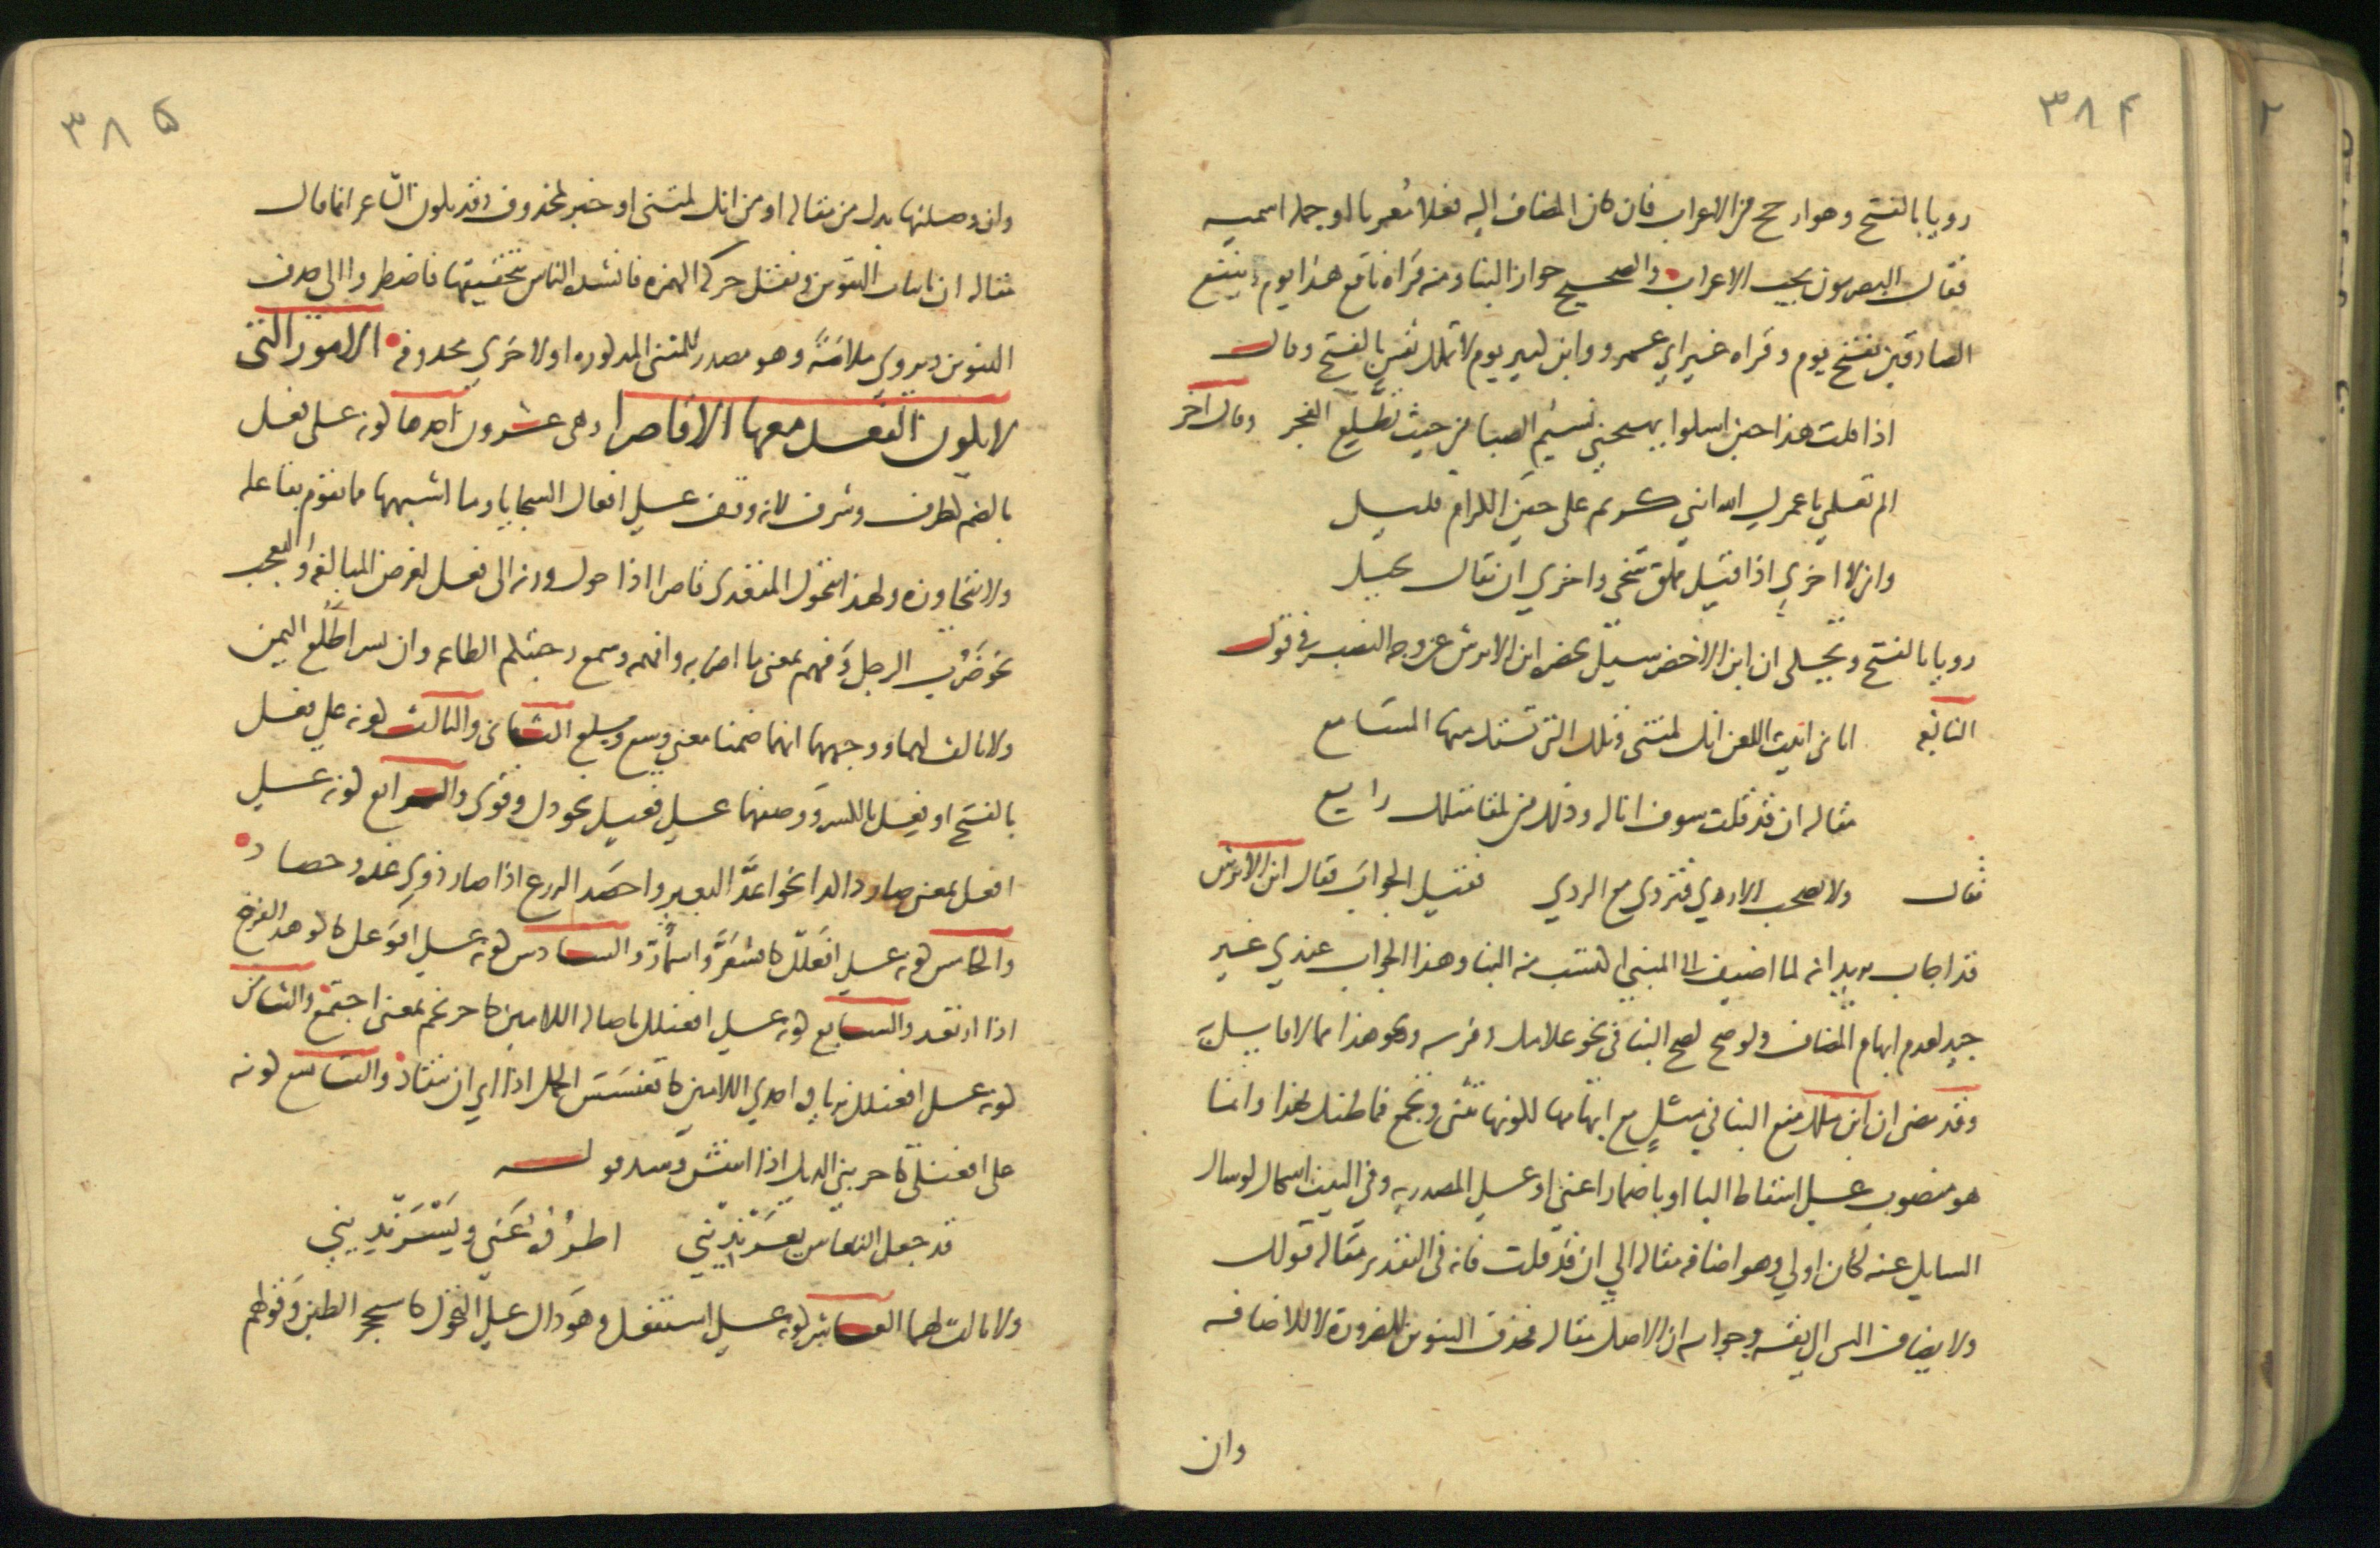 ٣٨٤
رويا بالفتح وهو ارجح من الاعراب فان كان المضاف اليه فعلا معربا او جمله اسميه
فقال البصريون يجب الاعراب والصحيح جواز البنا ومنه قراه نافع هذا يوم ينفع
الصادقين بفتح يوم وقراه غير ابي عمرو وابن كثير يوم لا تملك نفس بالفتح وقال
اذا قلت هذا حين اسلوا يهيجني نسيم الصبا من حيث تطلع الفجر وقال اخر
الم تعلمي يا عمرك الله انني كريم على حين الكرام قليل
واني لا اخزى اذا قيل مملق سخى واخزى ان يقال بخيل
رويا بالفتح ويحكى ان ابن الاخضر سيل بحضره ابن الابرش عن وجه النصب في قول
النابغه اتاني ابيت اللعن انك لمتنى وتلك التي تستك منها المسامع
مقاله ان قد قلت سوف اناله وذلك من تلقا مثلك رايع
فقال ولا تصحب الاردي فتردي مع الردي فقيل الجواب فقال ابن الابرش
قد اجاب يريد انه لما اضيف الى المبني اكتسب منه البنا وهذا الجواب عندي غير
جيد لعدم ابهام المضاف ولو صح لصح البنا في نحو غلامك وفرسه ونحو هذا مما لا قايل به
وقد مضى ان ابن ملك منع البنا في مثل مع ابهامها لكونها تثنى وتجمع فما ظنك بهذا وانما
هو منصوب على اسقاط البا او باضمار اعني او على المصدريه وفي البيت اشكال لو سال
السايل عنه كان اولى وهو اضافه مقاله الى ان قد قلت فانه في التقدير مقاله قولك
ولا يضاف الشي الى نفسه وجوابه ان الاصل مقاله فحذف التنوين للضروره لا للاضافه
وان
٣٨٥
وان وصلتها بدل من مقاله او من انك لمتنى او خبر لمحذوف وقد يكون الشاعر انما قال
مقاله ان باثبات التنوين ونقل حركه الهمزه فانشده الناس بتحقيقها فاضطروا الى حذف
التنوين ويروى ملامه وهو مصدر للمتنى المذكوره او لاخرى محذوفه الامور التي
لا يكون الفعل معها الا قاصرا وهي عشرون احدها كونه على فعل
بالضم كظرف وشرف لانه وقف على افعال السجايا وما اشبهها مما يقوم بفاعله
ولا يتجاوزه ولهذا يتحول المتعدى قاصرا اذا حول وزنه الى فعل لغرض المبالغه والتعجب
نحو ضرب الرجل وفهم بمعنى ما اضربه وافهمه وسمع رحبتكم الطاعه وان بسرا طلع اليمن
ولا ثالث لهما ووجههما انهما ضمنا معنى وسع وبلغ الثاني والثالث كونه على فعل
بالفتح او فعل بالكسر ووصفهما على فعيل نحو ذل وقوى والرابع كونه على
افعل بمعنى صار ذا كذا نحو اغد البعير واحصد الزرع اذا صار ذوي غده وحصاد
والخامس كونه على افعلل كاقشعر واشمأز والسادس كونه على افوعل كاكوهد الفرخ
اذا ارتعد والسابع كونه على افعنلل باصاله اللامين كاحرنجم بمعنى اجتمع والثامن
كونه على افعنلل بزياده احدى اللامين كاقعنسس الجمل اذا ابى ان ينقاد والتاسع كونه
على افعنلى كاحرنبى الديك اذا انتفش وشذ قوله
قد جعل النعاس يغرنديني اطرده عني ويسرنديني
ولا ثالث لهما العاشر كونه على استفعل وهو دال على التحول كاستحجر الطين وقولهم